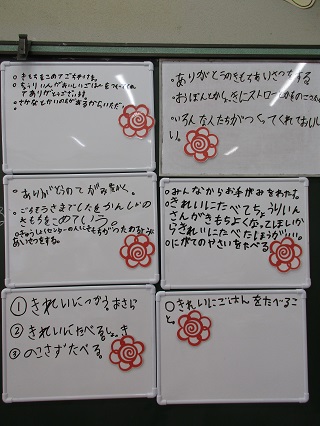 ○きもちをこめてごちそうさま。
○ちょうりいんがおいしいごはんをつくってくれ
てありがとうございます。
○さかなとかいのちがあるからいただい
・ありがとうのきもちをあいさつする
・おぼんとから、きにストローとかものこさない
・いろんな人たちがつくってくれておいし
い。
○ありがとうのてがみをかく。
○ごちそうさまでしたをかんしゃの
きもちをこめていう。
○きゅうしょくセンターの人にきもちがつたわるような
あいさつをする。
○みんなからお手がみをわたす。
○きれいにたべてちょうりいん
さんがきもちよくなってほしいか
らきれいにたべたほうがいい。
○にがてのやさいをたべる
①きれいにつかう。おさら
②きれいにたべる。しょっき
③のこさずたべる。
○きれいにごはんをたべるこ
と。